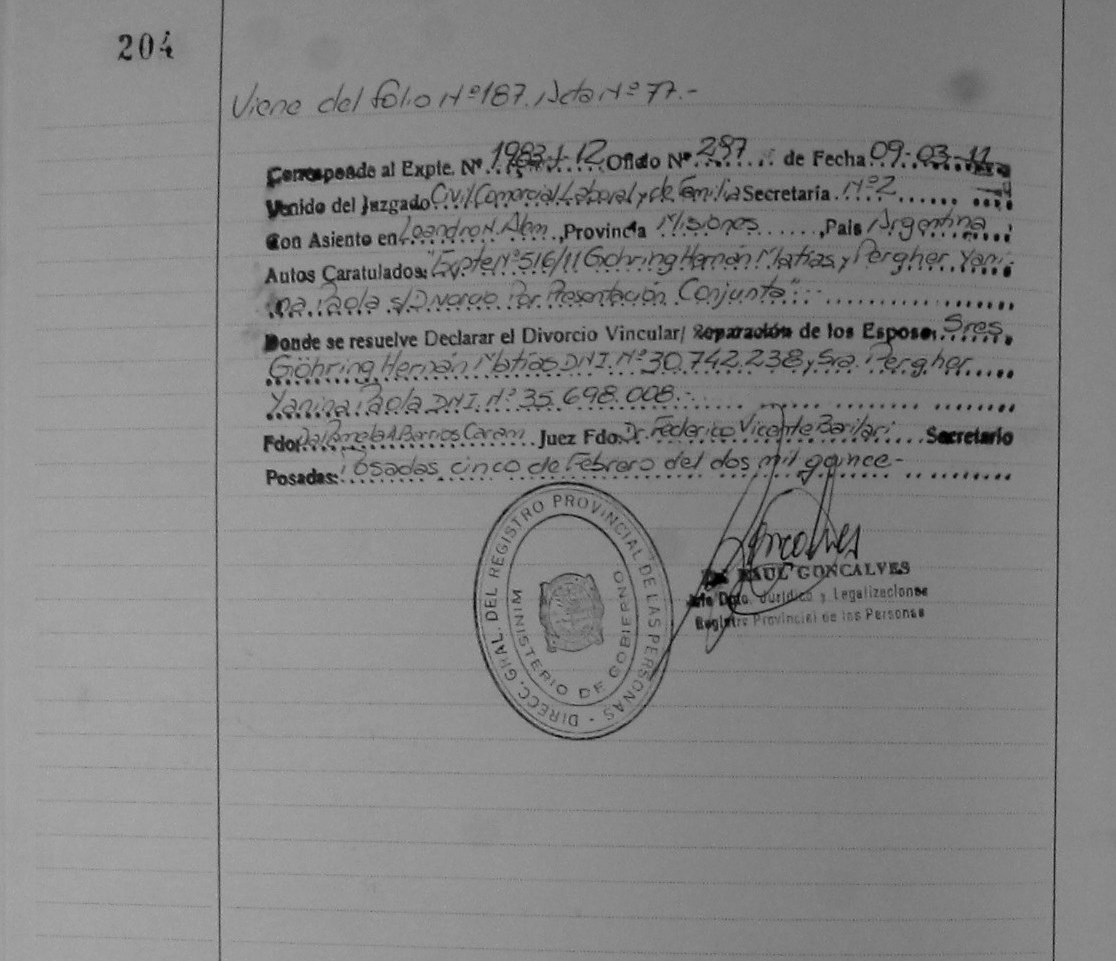 204
Viene del folio Nº 187. Acta Nº 77.-
Corresponde al Expte. Nº 1983-I-12 Oficio Nº 287 de Fecha 09-03-12
Venido del Juzgado Civil, Comercial, Laboral y de Familia Secretaría Nº 2
Con Asiento en Leandro N. Alem, Provincia Misiones, Pais Argentina
Autos Caratulados: "Expte Nº 516/11 Göhring Hernán Matías y Pergher Yani-
na Paola s/Divorcio Por Presentación Conjunta".-
Donde se resuelve Declarar el Divorcio Vincular/ Separación de los Esposos Sres.
Göhring Hernán Matías DNI. Nº 30.742.238 y Sra. Pergher
Yanina Paola DNI. Nº 35.698.008.-
Fdo: Pamela A Barrios Caram Juez Fdo. Dr. Federico Vicente Barilari Secretario
Posadas: Posadas cinco de Febrero del dos mil quince.-
DIRECC. GRAL. DEL REGISTRO PROVINCIAL DE LAS PERSONAS -
MINISTERIO DE GOBIERNO
Goncalves
RAUL GONCALVES
Jefe Dpto. Jurídico y Legalizaciones
Registro Provincial de las Personas